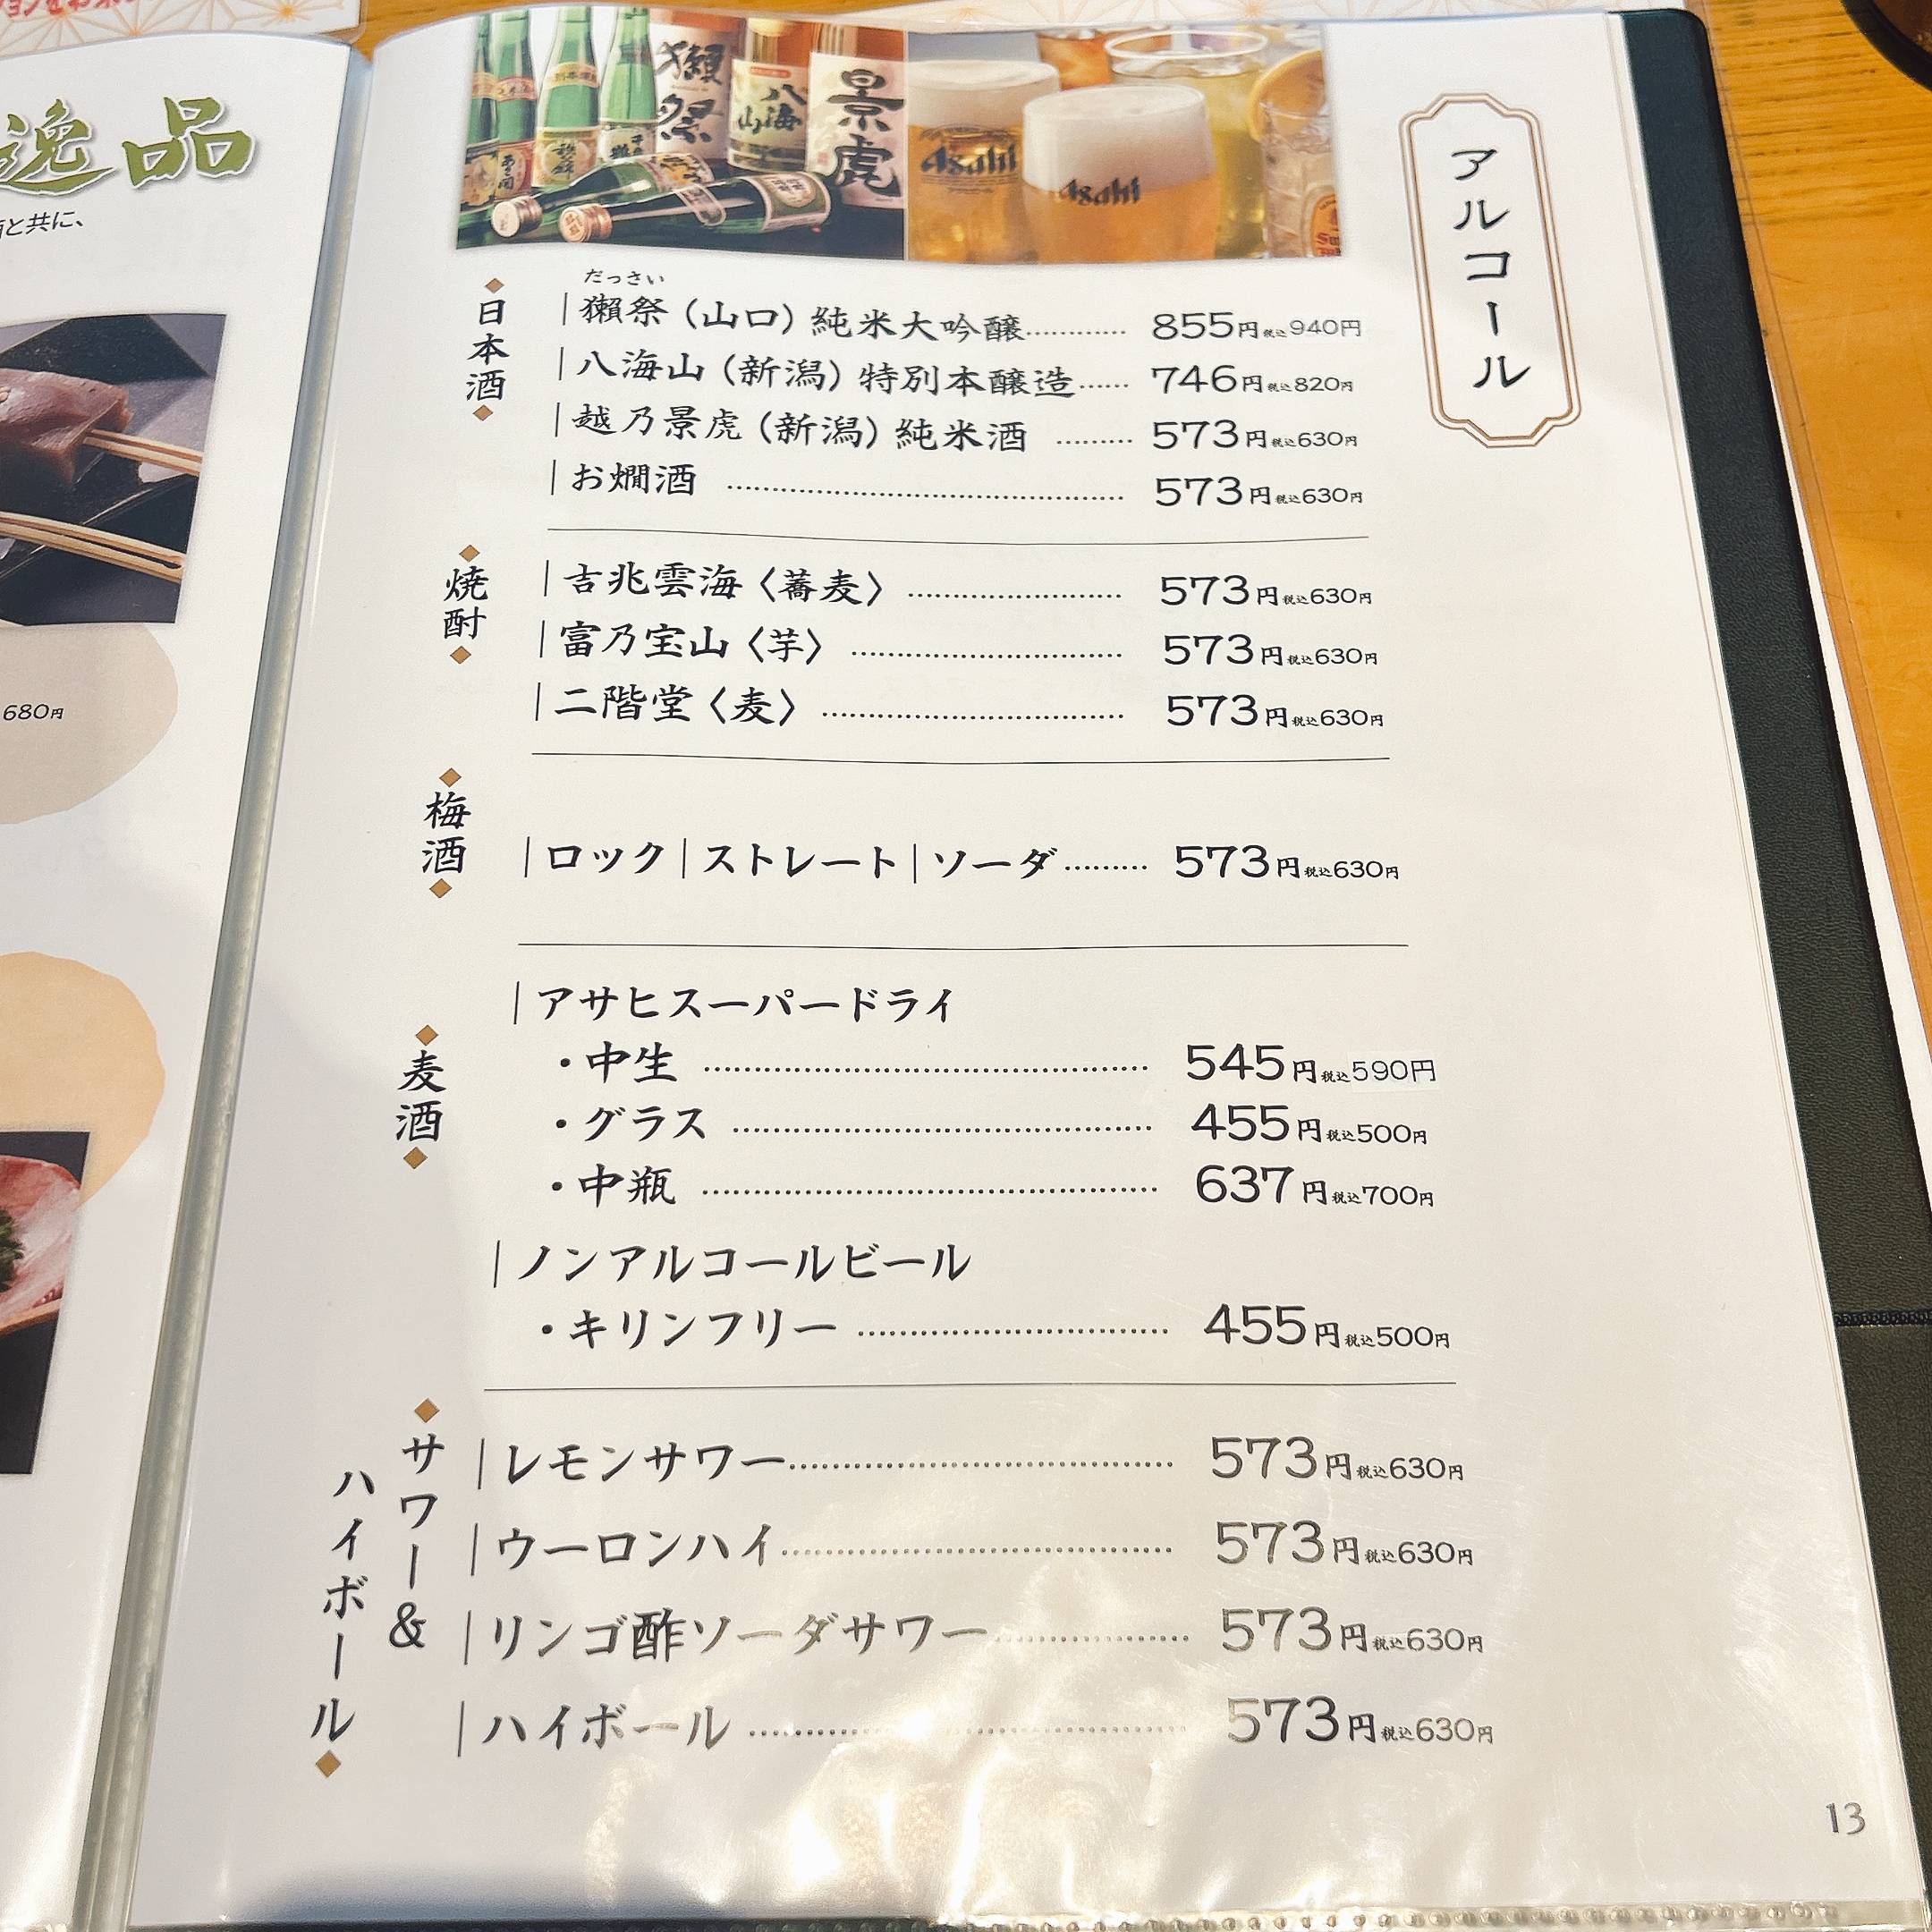 逸品
と共に、
680円
獺祭
八海山
景虎
Asahi
Asahi
アルコール
日本酒
だっさい
獺祭（山口）純米大吟醸............ 855円税込940円
八海山（新潟）特別本醸造...... 746円税込820円
越乃景虎（新潟）純米酒 ......... 573円税込630円
お燗酒 ............................ 573円税込630円
焼酎
吉兆雲海〈蕎麦〉 ............................ 573円税込630円
富乃宝山〈芋〉 ............................ 573円税込630円
二階堂〈麦〉 ............................ 573円税込630円
梅酒
|ロック|ストレート|ソーダ......... 573円税込630円
麦酒
アサヒスーパードライ
・中生 ............................ 545円税込590円
・グラス ............................ 455円税込500円
・中瓶 ............................ 637円税込700円
ノンアルコールビール
・キリンフリー ............................ 455円税込500円
サワー&
ハイボール
レモンサワー............................ 573円税込630円
ウーロンハイ............................ 573円税込630円
リンゴ酢ソーダサワー.................... 573円税込630円
ハイボール ............................ 573円税込630円
13